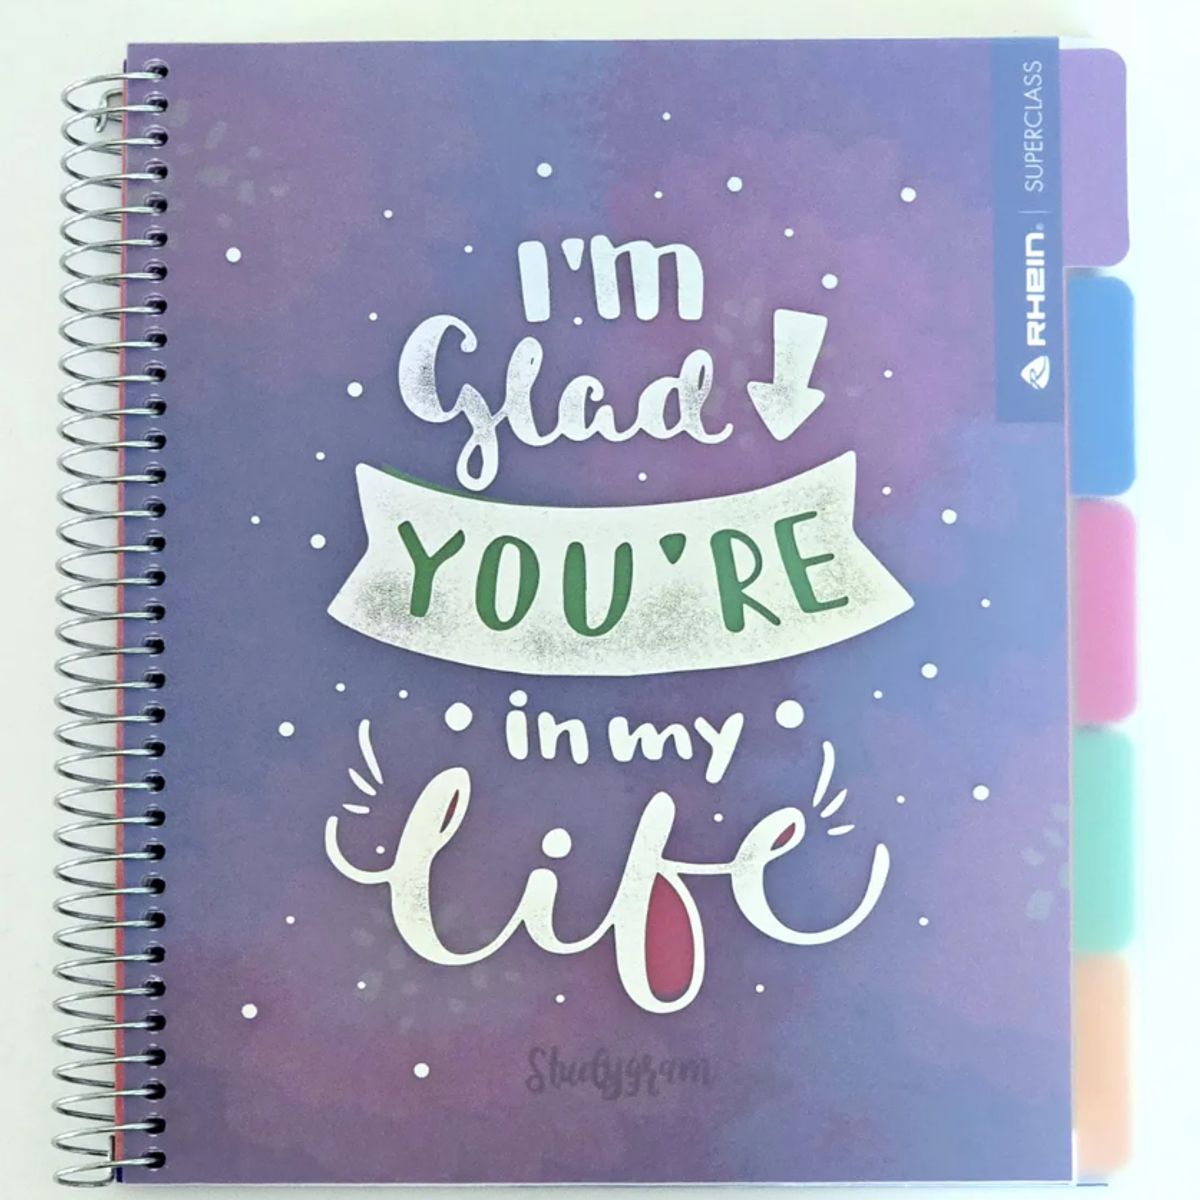 I'm
Glad
YOU'RE
in my
life
Studygram
RHEIN® | SUPERCLASS